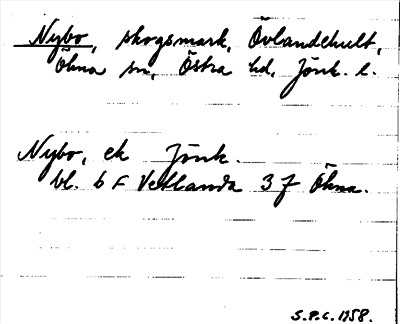 Nybo, skogsmark, Övlandehult,
Ökna sn, Östra hd, Jönk. l.
Nybo, ek Jönk.
bl. 6 F Vetlanda 3 f Ökna.
S.P.C. 1958.